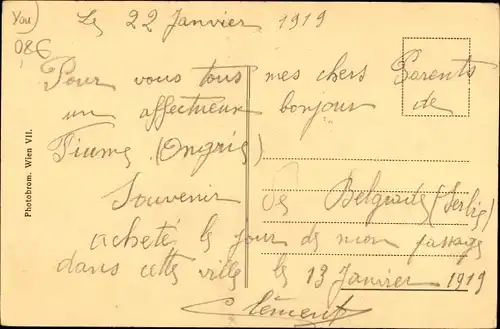 You)
086
Le 22 Janvier 1919
Pour vous tous mes chers Parents
un affectueux bonjour de
Fiume (Ongrie)
Souvenir de Belgrade (Serbie)
acheté le jour de mon passage
dans cette ville le 13 Janvier 1919
Clément
Photobrom. Wien VII.